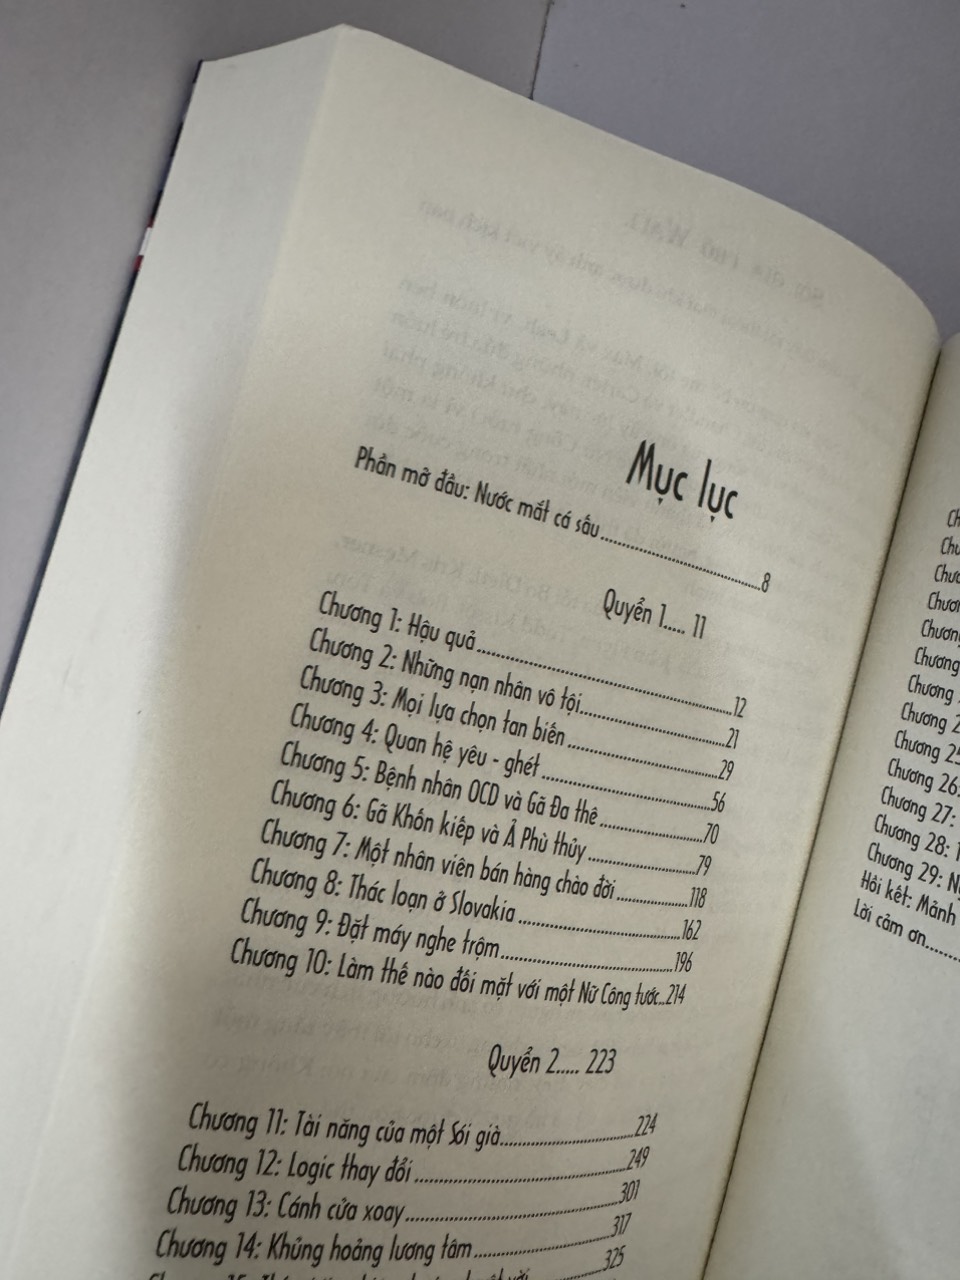 Mục lục
Phần mở đầu: Nước mắt cá sấu..........8
Quyển 1..... 11
Chương 1: Hậu quả..........12
Chương 2: Những nạn nhân vô tội..........21
Chương 3: Mọi lựa chọn tan biến..........29
Chương 4: Quan hệ yêu - ghét..........56
Chương 5: Bệnh nhân OCD và Gã Đa thê..........70
Chương 6: Gã Khốn kiếp và Ả Phù thủy..........79
Chương 7: Một nhân viên bán hàng chào đời..........118
Chương 8: Thác loạn ở Slovakia..........162
Chương 9: Đặt máy nghe trộm..........196
Chương 10: Làm thế nào đối mặt với một Nữ Công tước..214
Quyển 2..... 223
Chương 11: Tài năng của một Sói già..........224
Chương 12: Logic thay đổi..........249
Chương 13: Cánh cửa xoay..........301
Chương 14: Khủng hoảng lương tâm..........317
325
Chương
Chương
Chương 2
Chương 25
Chương 26:
Chương 27:
Chương 28:
Chương 29:
Hồi kết: Mảnh
Lời cảm ơn